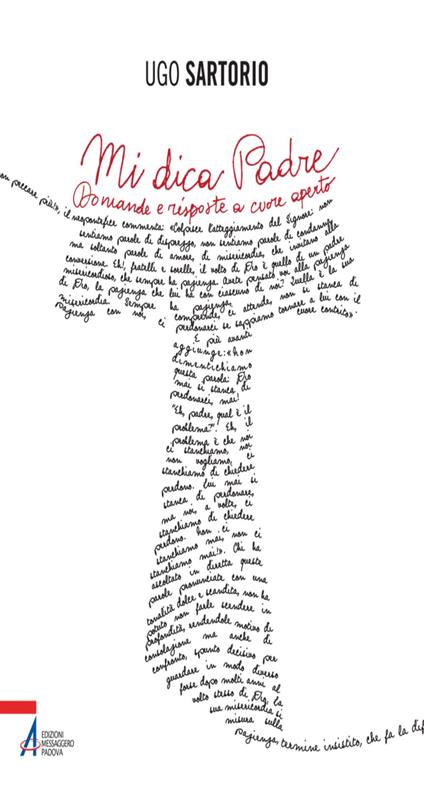 UGO SARTORIO
Mi dica Padre
Domande e risposte a cuore aperto
non peccare più!», il neopontefice commenta: «Colpisce l'atteggiamento del Signore: non
sentiamo parole di disprezzo, non sentiamo parole di condanna,
ma soltanto parole di amore, di misericordia, che invitano alla
conversione. Eh!, fratelli e sorelle, il volto di Dio è quello di un padre
misericordioso, che sempre ha pazienza. Avete pensato voi alla pazienza
di Dio, la pazienza che lui ha con ciascuno di noi? Quella è la sua
misericordia. Sempre ha pazienza,
pazienza con noi, ci comprende, ci attende, non si stanca di
perdonarci se sappiamo tornare a lui con il
cuore contrito».
E più avanti
aggiunge: «Non
dimentichiamo
questa parola: Dio
mai si stanca di
perdonarci, mai!
"Eh, padre, qual è il
problema?". Eh, il
problema è che noi
ci stanchiamo, noi
non vogliamo, ci
stanchiamo di chiedere
perdono. Lui mai si
stanca di perdonare,
ma noi, a volte, ci
stanchiamo di chiedere
perdono. Non ci
stanchiamo mai, non ci
stanchiamo mai!». Chi ha
ascoltato in diretta queste
parole pronunciate con una
tonalità dolce e scandita, non ha
potuto non farle scendere in
profondità, rendendole motivo di
consolazione ma anche di
confronto, spunto decisivo per
guardare in modo diverso
forse dopo molti anni al
volto stesso di Dio. La
sua misericordia si
misura sulla
pazienza, termine insistito, che fa la dif
EDIZIONI
MESSAGGERO
PADOVA